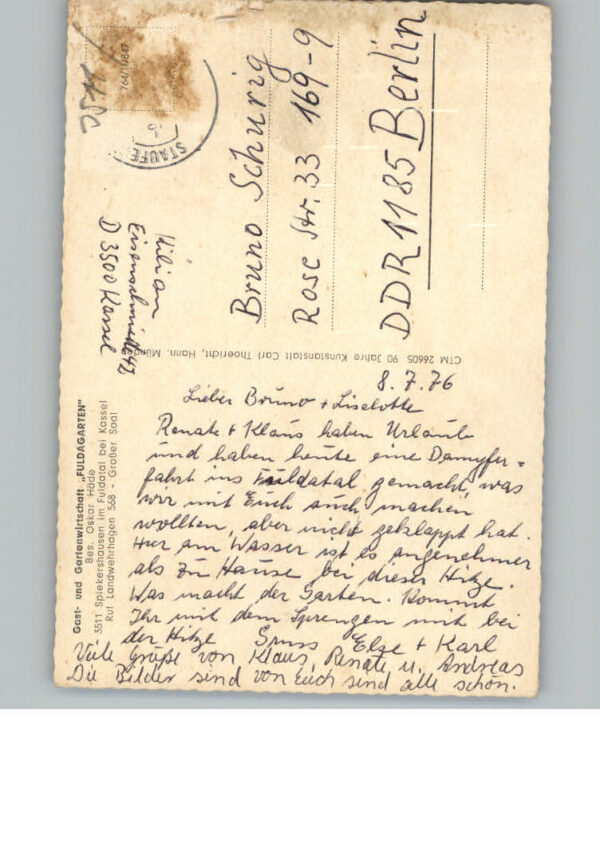 764/10847
STAUFE
Bruno Schurig
Rose Str. 33 169-9
DDR 1185 Berlin
Kilian
Eisenschmiede 42
D 3500 Kassel
CTM 26605 90 Jahre Kunstanstalt Carl Thoericht, Hann. Münden
Gast- und Gartenwirtschaft „FULDAGARTEN"
Bes. Oskar Häde
3511 Spiekershausen im Fuldatal bei Kassel
Ruf Landwehrhagen 568 - Großer Saal
8.7.76
Lieber Bruno + Liselotte
Renate + Klaus haben Urlaub
und haben heute eine Dampfer=
fahrt ins Fuldatal gemacht, was
wir mit Euch auch machen
wollten, aber nicht geklappt hat.
Hier am Wasser ist es angenehmer
als zu Hause bei dieser Hitze.
Was macht der Garten. Kommt
Ihr mit dem Sprengen mit bei
der Hitze Gruss Else + Karl
Viele Grüße von Klaus, Renate u. Andreas
Die Bilder sind von Euch sind alle schön.